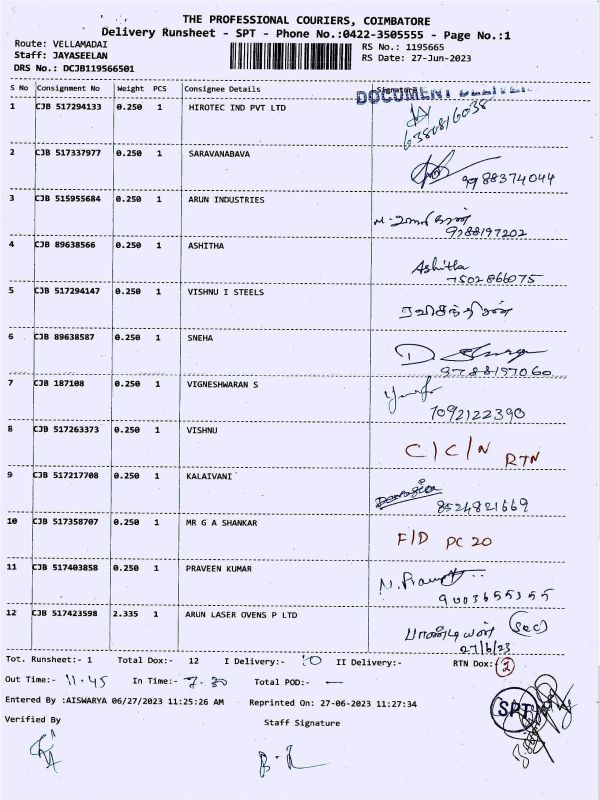 THE PROFESSIONAL COURIERS, COIMBATORE
Delivery Runsheet - SPT - Phone No.:0422-3505555 - Page No.:1
Route: VELLAMADAI RS No.: 1195665
Staff: JAYASEELAN RS Date: 27-Jun-2023
DRS No.: DCJB119566501
S No Consignment No Weight PCS Consignee Details Signature
DOCUMENT
1 CJB 517294133 0.250 1 HIROTEC IND PVT LTD
6380816038
2 CJB 517337977 0.250 1 SARAVANABAVA
9788374044
3 CJB 515955684 0.250 1 ARUN INDUSTRIES
9288197202
4 CJB 89638566 0.250 1 ASHITHA
Ashitha
7502866075
5 CJB 517294147 0.250 1 VISHNU I STEELS
ரவிசந்திரன்
6 CJB 89638587 0.250 1 SNEHA
9788197060
7 CJB 187108 0.250 1 VIGNESHWARAN S
7092122390
8 CJB 517263373 0.250 1 VISHNU
C/C/N RTN
9 CJB 517217708 0.250 1 KALAIVANI
8524821669
10 CJB 517358707 0.250 1 MR G A SHANKAR
F/D PC 20
11 CJB 517403858 0.250 1 PRAVEEN KUMAR
9003655355
12 CJB 517423598 2.335 1 ARUN LASER OVENS P LTD
பாண்டியன் (Sec)
27/6/23
Tot. Runsheet:- 1 Total Dox:- 12 I Delivery:- 10 II Delivery:- RTN Dox:- 2
Out Time:- 11.45 In Time:- 7.30 Total POD:- —
Entered By :AISWARYA 06/27/2023 11:25:26 AM Reprinted On: 27-06-2023 11:27:34
SPT
Verified By Staff Signature